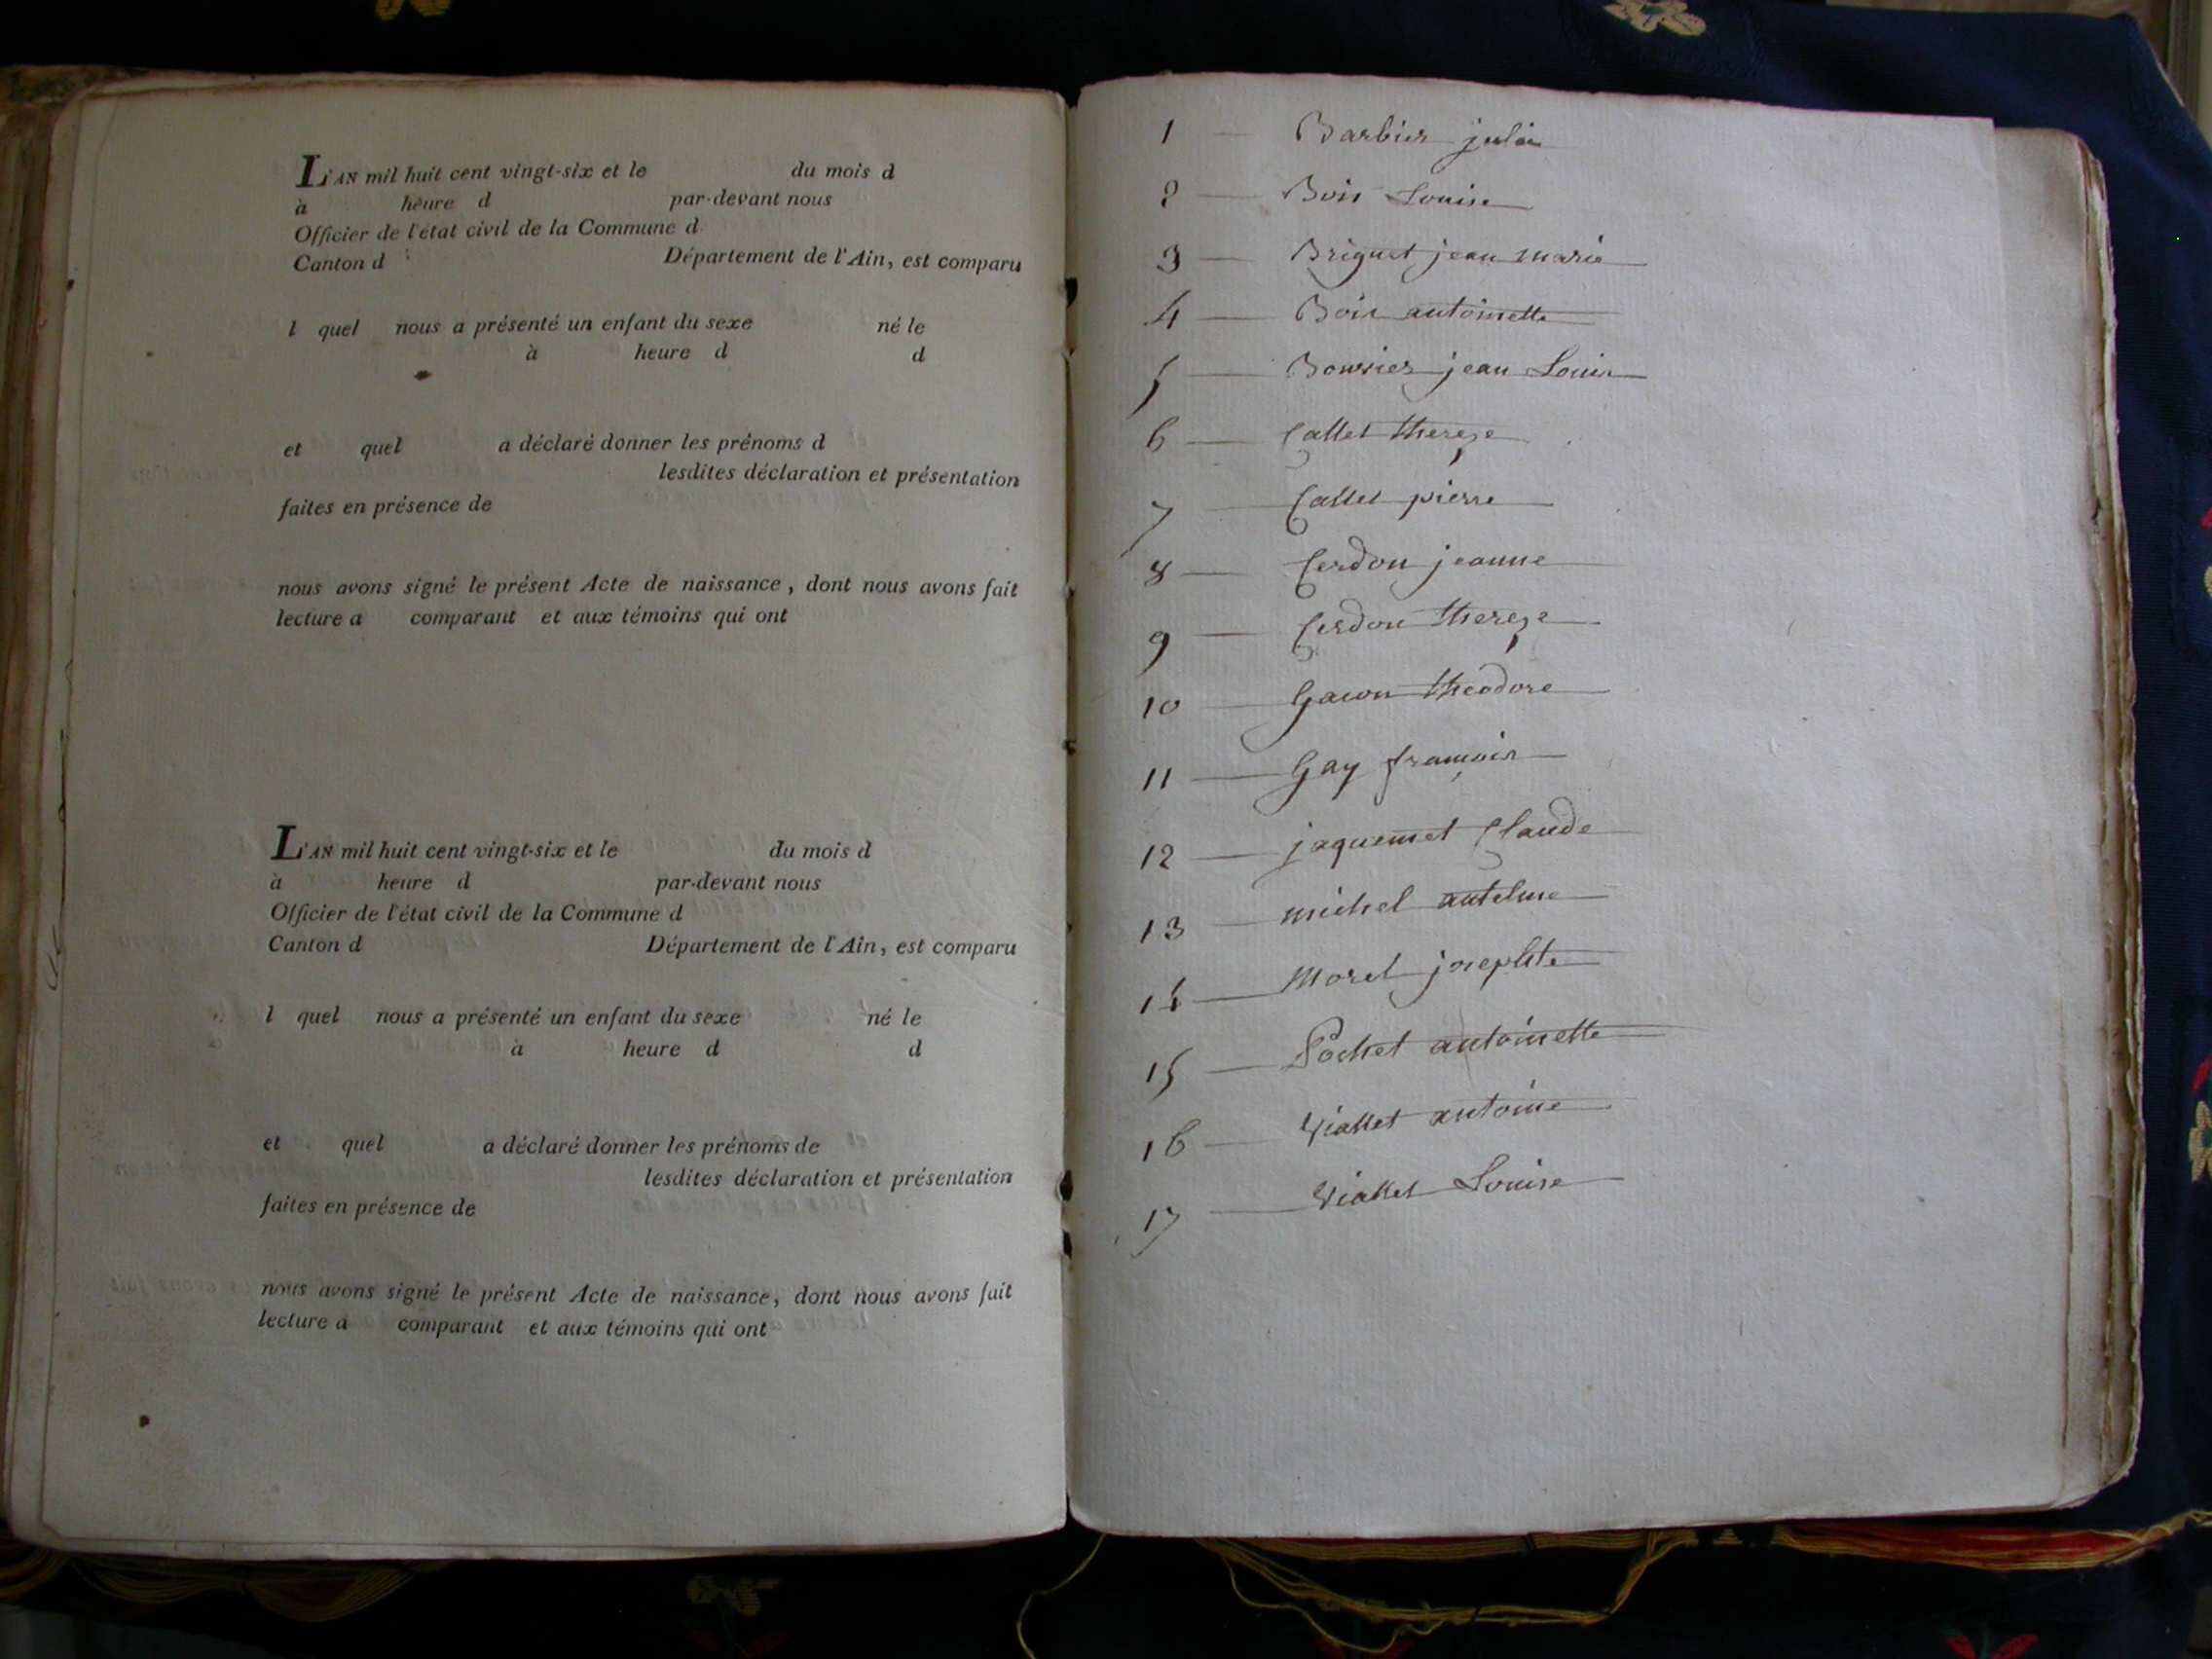 L'AN mil huit cent vingt-six et le du mois d
à heure d par-devant nous
Officier de l'état civil de la Commune d
Canton d Département de l'Ain, est comparu
l quel nous a présenté un enfant du sexe né le
à heure d d
et quel a déclaré donner les prénoms d
lesdites déclaration et présentation
faites en présence de
nous avons signé le présent Acte de naissance, dont nous avons fait
lecture a comparant et aux témoins qui ont
L'AN mil huit cent vingt-six et le du mois d
à heure d par-devant nous
Officier de l'état civil de la Commune d
Canton d Département de l'Ain, est comparu
l quel nous a présenté un enfant du sexe né le
à heure d d
et quel a déclaré donner les prénoms de
lesdites déclaration et présentation
faites en présence de
nous avons signé le présent Acte de naissance, dont nous avons fait
lecture a comparant et aux témoins qui ont
1 — Barbier
2 — Bois Louise
3 — Briguet jean marie
4 — Bois antoinette
5 — jean Louis
6 — Callet thereze
7 — Callet pierre
8 — Cerdon jeanne
9 — Cerdon thereze
10 — Gacon theodore
11 — Gay françois
12 — jaquemet Claude
13 — michel antelme
14 — Morel josephte
15 — Pochet antoinette
16 — Viallet antoine
17 — Viallet Louise